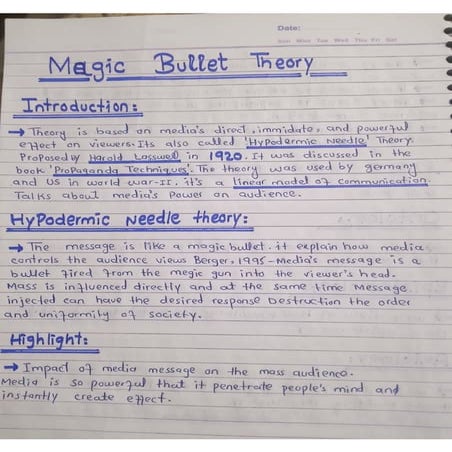 Date:
Sun Mon Tue Wed Thu Fri Sat
Magic Bullet Theory
Introduction:
→ Theory is based on media's direct, immidate, and powerful
effect on viewers. Its also called 'Hypodermic Needle' Theory.
Proposed by Harold Lasswell in 1920. It was discussed in the
book 'ProPaganda Techniques'. The theory was used by germany
and US in world war-II. it's a linear model of communication.
Talks about media's Power on audience.
HyPodermic Needle theory:
→ The message is like a magic bullet. it explain how media
controls the audience views Berger, 1995 - Media's message is a
bullet fired from the megic gun into the viewer's head.
Mass is influenced directly and at the same time Message
injected can have the desired response Destruction the order
and uniformity of society.
Highlight:
→ Impact of media message on the mass audience.
Media is so powerful that it penetrate people's mind and
instantly create effect.